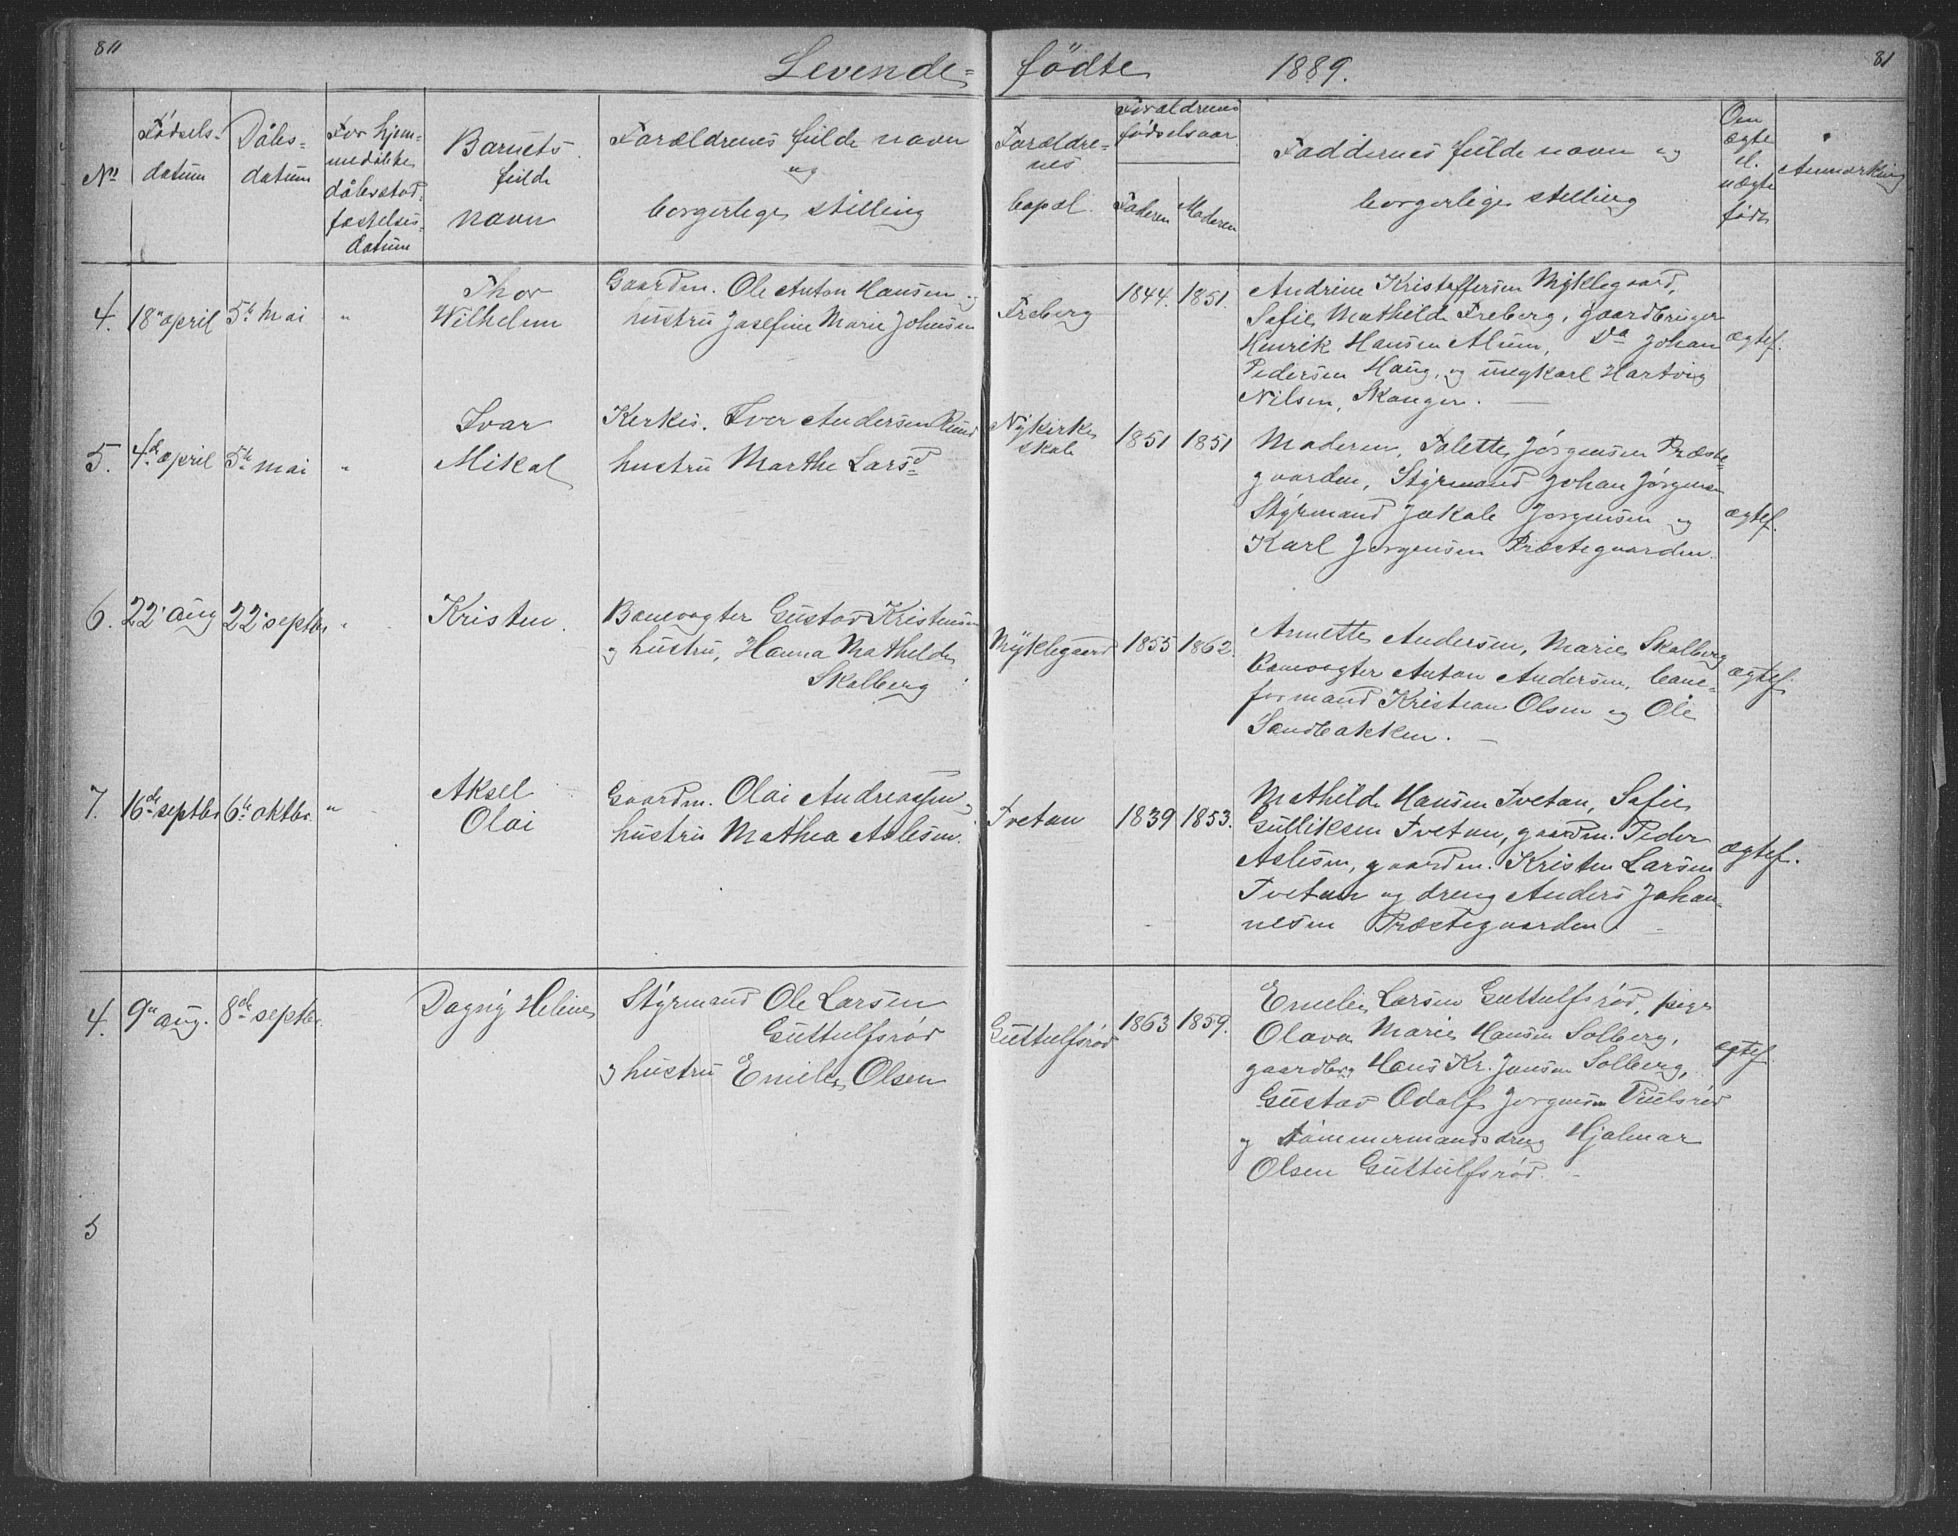 80
81
Levende= fødte 1889.
No
Fødsels-
datum
Dåbs=
datum
For hjem-
medøbte
dåbsstad-
fæstelses-
datum
Barnets
fulde
navn
Forældrenes fulde navn
og
borgerlige stilling
Forældre-
nes
bopæl.
Forældrenes
fødselsaar.
Faderen
Moderen
Faddernes fulde navn og
borgerlige stilling
Om
ægte
el.
uægte
født
Anmærkning
4. 18de april 5te mai "
Thor
Wilhelm
Gaardm. Ole Anton Hansen og
hustru Josefine Marie Johnsen
Freberg
1844. 1851.
Andrine Kristoffersen Myklegaard,
Sofie Mathilde Freberg, gaardbruger
Henrik Hansen Alum, Do Johan
Pedersen Haug, og ungkarl Hartvig
Nilsen, Skanger.
ægtef.
5. 4de april 5te mai "
Ivar
Mikal
Kirkes. Iver Andersen Rund
hustru Marthe Larsd
Nykirke
skole
1851 1851
Moderen, Jolette Jørgensen Præste-
gaarden, Styrmand Johan Jørgensen
Styrmand Jakob Jørgensen og
Karl Jørgensen Præstegaarden.
ægtef.
6. 22. aug 22. septbr "
Kristen.
Banevogter Gustav Kristensen
og hustru, Hanna Mathilde
Skalberg
Myklegaard
1855 1862.
Annette Andersen, Marie Skalberg
Banevogter Anton Andersen, bane-
formand Kristian Olsen og Ole
Sandbakken.
ægtef.
7. 16de septbr 6te oktbr. "
Aksel
Olai
Gaardm. Olai Andreassen og
hustru Mathea Aslesen.
Tvetan
1839 1853.
Mathilde Hansen Tvetan, Sofie
Gulliksen Tvetan, gaardm. Peder
Aslesen, gaardm. Kristen Larsen
Tvetan og dreng Anders Johan-
nesen Præstegaarden.
ægtef.
4. 9de aug. 8de septbr.
Dagny Heline
Styrmand Ole Larsen
Guttulfsrød
og hustru Emelie Olsen
Guttulfsrød
1863 1859.
Emelie Larsen Guttulfsrød, pige
Olava Marie Hansen Solberg,
gaardbrg Hans Kr. Jansen Solberg,
Gustav Adolf Jørgensen
og tømmermandsdreng Hjalmar
Olsen Guttulfsrød.
ægtef.
5